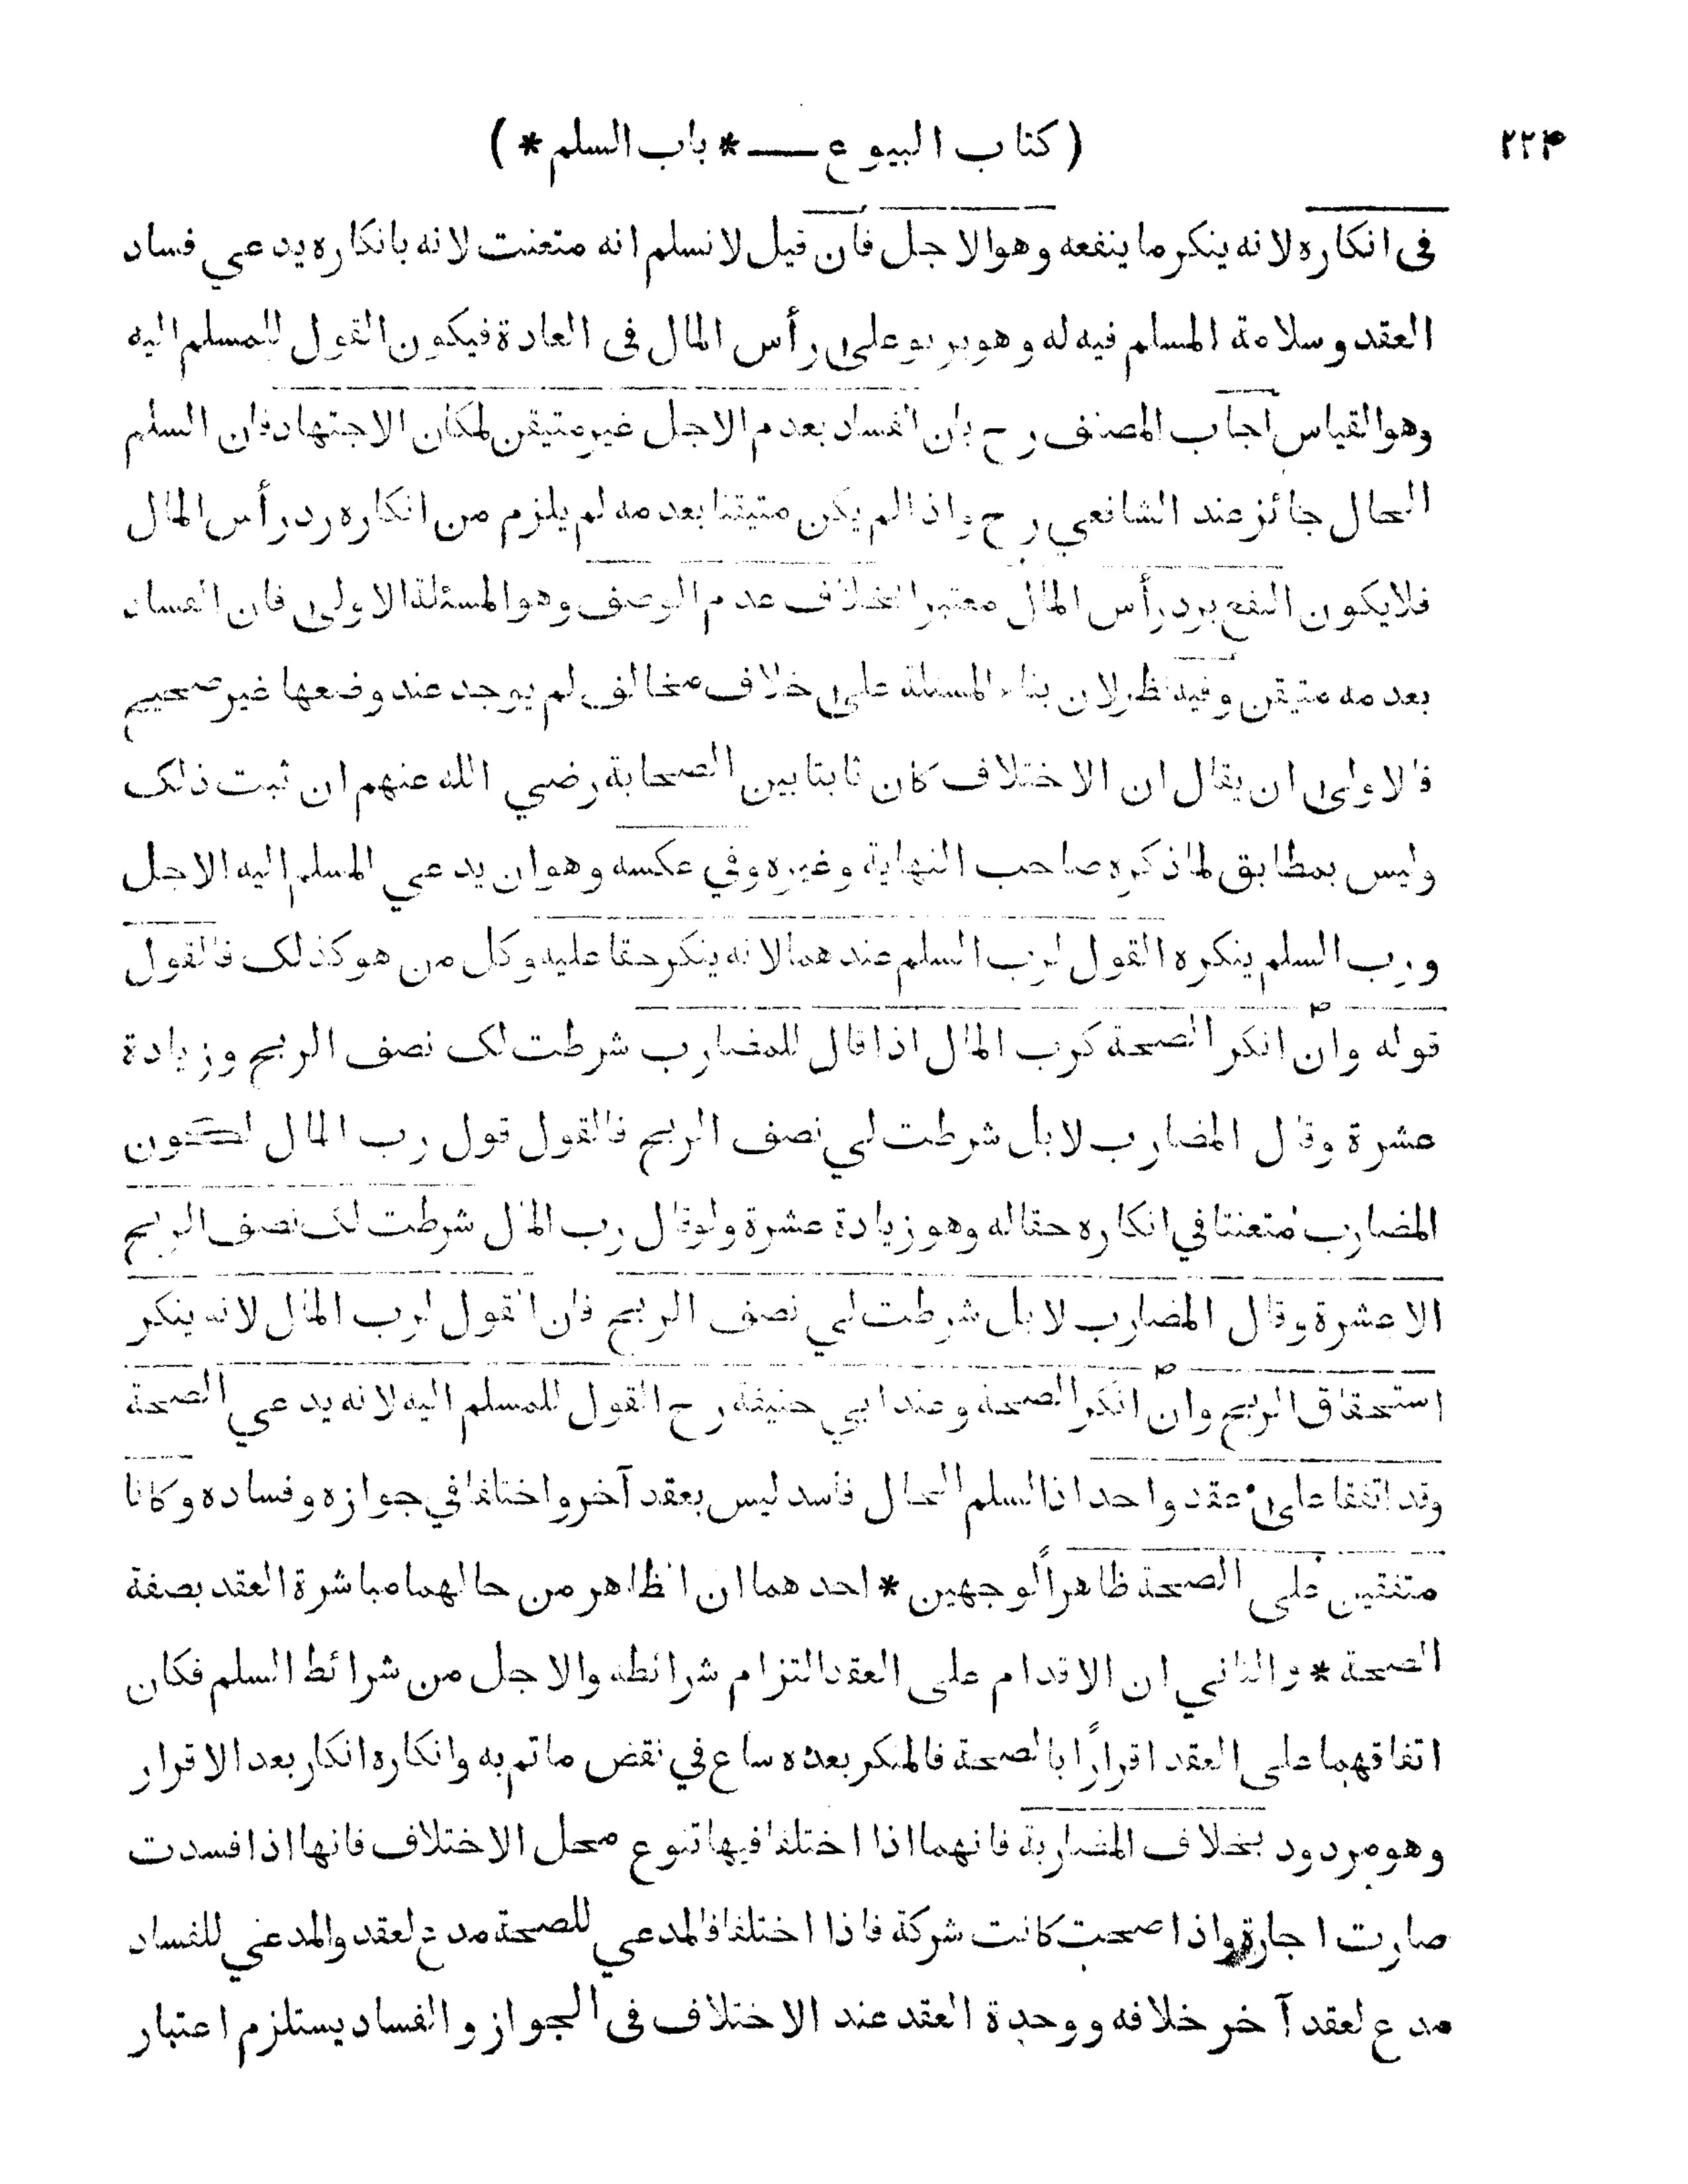 ٢٢۴ ( كتاب البيوع — * باب السلم * )
فى انكاره لانه ينكر ما ينفعه وهو الاجل فان قيل لا نسلم انه متعنت لانه بانكاره يدعي فساد
العقد وسلامة المسلم فيه له وهو يربو على رأس المال فى العادة فيكون القول للمسلم اليه
وهو القياس اجاب المصنف رح بان الفساد بعدم الاجل غير متيقن لمكان الاجتهاد فان السلم
الحال جائز عند الشافعي رح واذا لم يكن متيقنا بعدمه لم يلزم من انكاره رد رأس المال
فلا يكون النفع برد رأس المال معتبرا بخلاف عدم الوصف وهو المسئلة الاولى فان الفساد
بعدمه متيقن وفيه نظر لان بناء المسئلة على خلاف مخالف لم يوجد عند وضعها غير صحيح
فالاولى ان يقال ان الاختلاف كان ثابتا بين الصحابة رضي الله عنهم ان ثبت ذلك
وليس بمطابق لما ذكره صاحب النهاية وغيره وفي عكسه وهو ان يدعي المسلم اليه الاجل
ورب السلم ينكره القول لرب السلم عندهما لانه ينكر حقا عليه وكل من هو كذلك فالقول
قوله وان انكر الصحة كرب المال اذا قال للمضارب شرطت لك نصف الربح وزيادة
عشرة وقال المضارب لا بل شرطت لي نصف الربح فالقول قول رب المال لكون
المضارب متعنتا في انكاره حقا له وهو زيادة عشرة ولو قال رب المال شرطت لك نصف الربح
الا عشرة وقال المضارب لا بل شرطت لي نصف الربح فان القول لرب المال لانه ينكر
استحقاق الربح وان انكر الصحة وعند ابي حنيفة رح القول للمسلم اليه لانه يدعي الصحة
وقد اتفقا على عقد واحد اذ السلم الحال فاسد ليس بعقد آخر واختلفا في جوازه وفساده وكانا
متفقين على الصحة ظاهراً لوجهين * احدهما ان الظاهر من حالهما مباشرة العقد بصفة
الصحة * والثاني ان الاقدام على العقد التزام شرائطه والاجل من شرائط السلم فكان
اتفاقهما على العقد اقراراً بالصحة فالمنكر بعده ساع في نقض ما تم به وانكاره انكار بعد الاقرار
وهو مردود بخلاف المضاربة فانهما اذا اختلفا فيها تنوع محل الاختلاف فانها اذا فسدت
صارت اجارة واذا صحت كانت شركة فاذا اختلفا فالمدعي للصحة مدع لعقد والمدعي للفساد
مدع لعقد آخر خلافه ووحدة العقد عند الاختلاف فى الجواز والفساد يستلزم اعتبار